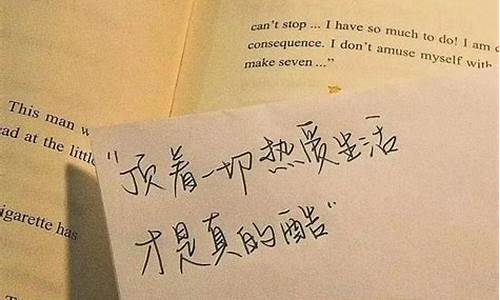 can't stop ... I have so much to do! I am
consequence. I don't amuse myself with
make seven ..."
This man
ad at the little
igarette has
"顶着一切热爱生活
才是真的酷"